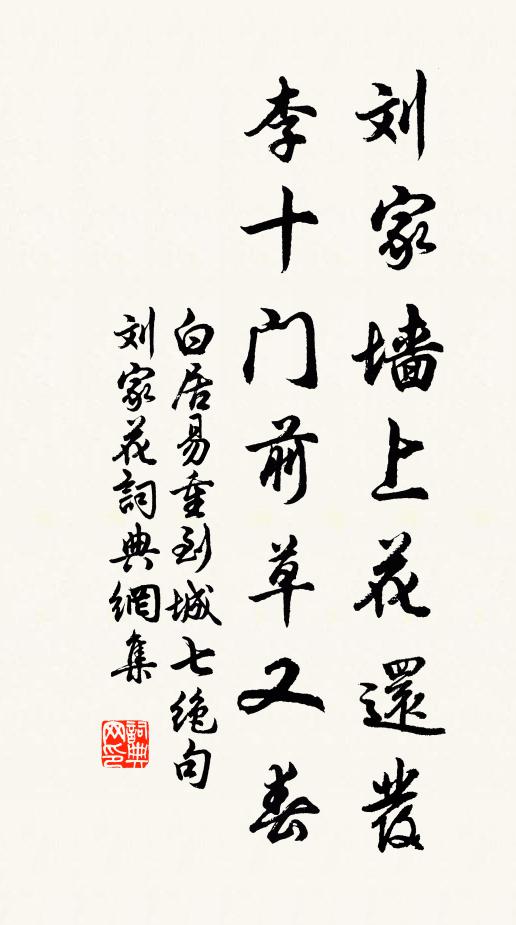 刘家墙上花還發
李十门前草又春
白居易重到城七绝句
刘家花詞典網集
詞典
网印